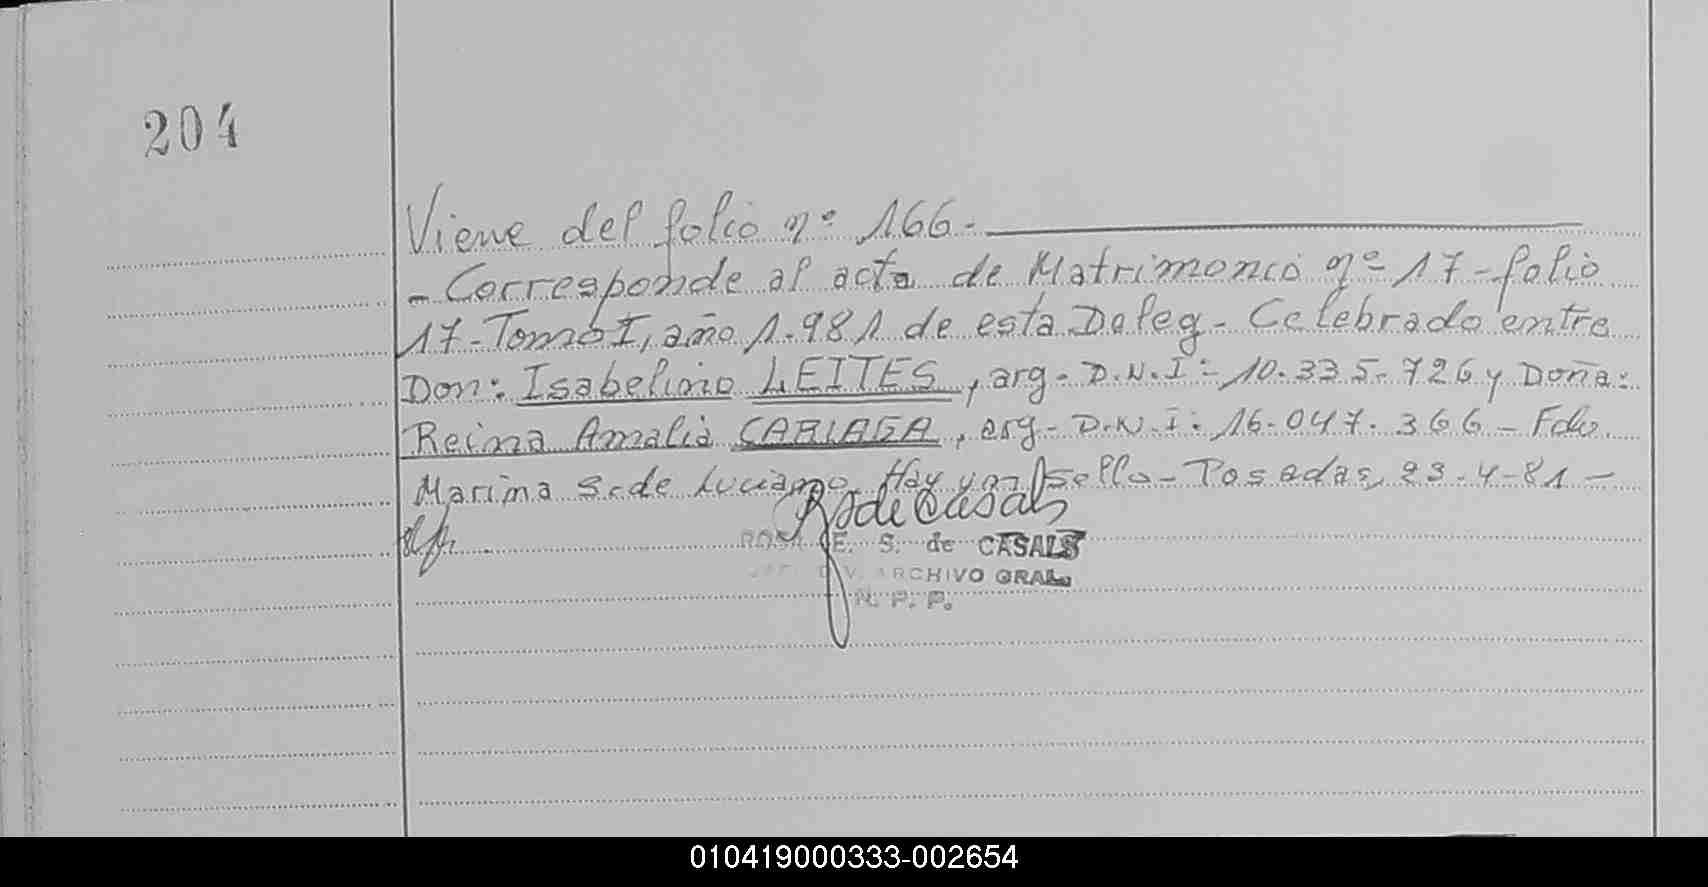 204
Viene del folio nº 166.-
- Corresponde al acta de Matrimonio nº 17 - folio
17 - Tomo I, año 1.981 de esta Deleg - Celebrado entre
Don: Isabelino LEITES, arg - D.N.I - 10.335.726 y Doña:
Reina Amalia CARIAGA, arg - D.N.I: 16.047.366 - Fdo.
Marina S. de Luciano. Hay un sello - Posadas, 23-4-81 -
R de Casals
ROSA E. S. de CASALS
DIV. ARCHIVO GRAL.
R. P. P.
010419000333-002654